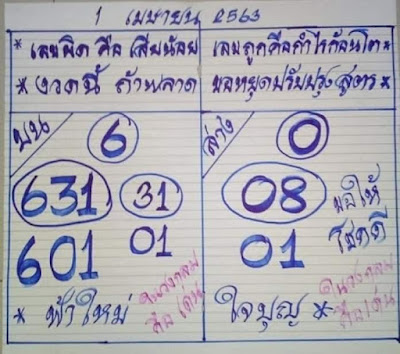 1 เมษายน 2563
* เลขผิด คือ เสียน้อย เลขถูกคือกำไรก้อนโต
* งวดนี้ ถ้าพลาด ขอหยุดปรับปรุงสูตร *
บน 6 ล่าง 0
631 31 08 ขอให้
601 01 01 โชคดี
* ฟ้าใหม่ ใจบุญ *
ในวงกลม ในวงกลม
คือเด่น คือเด่น